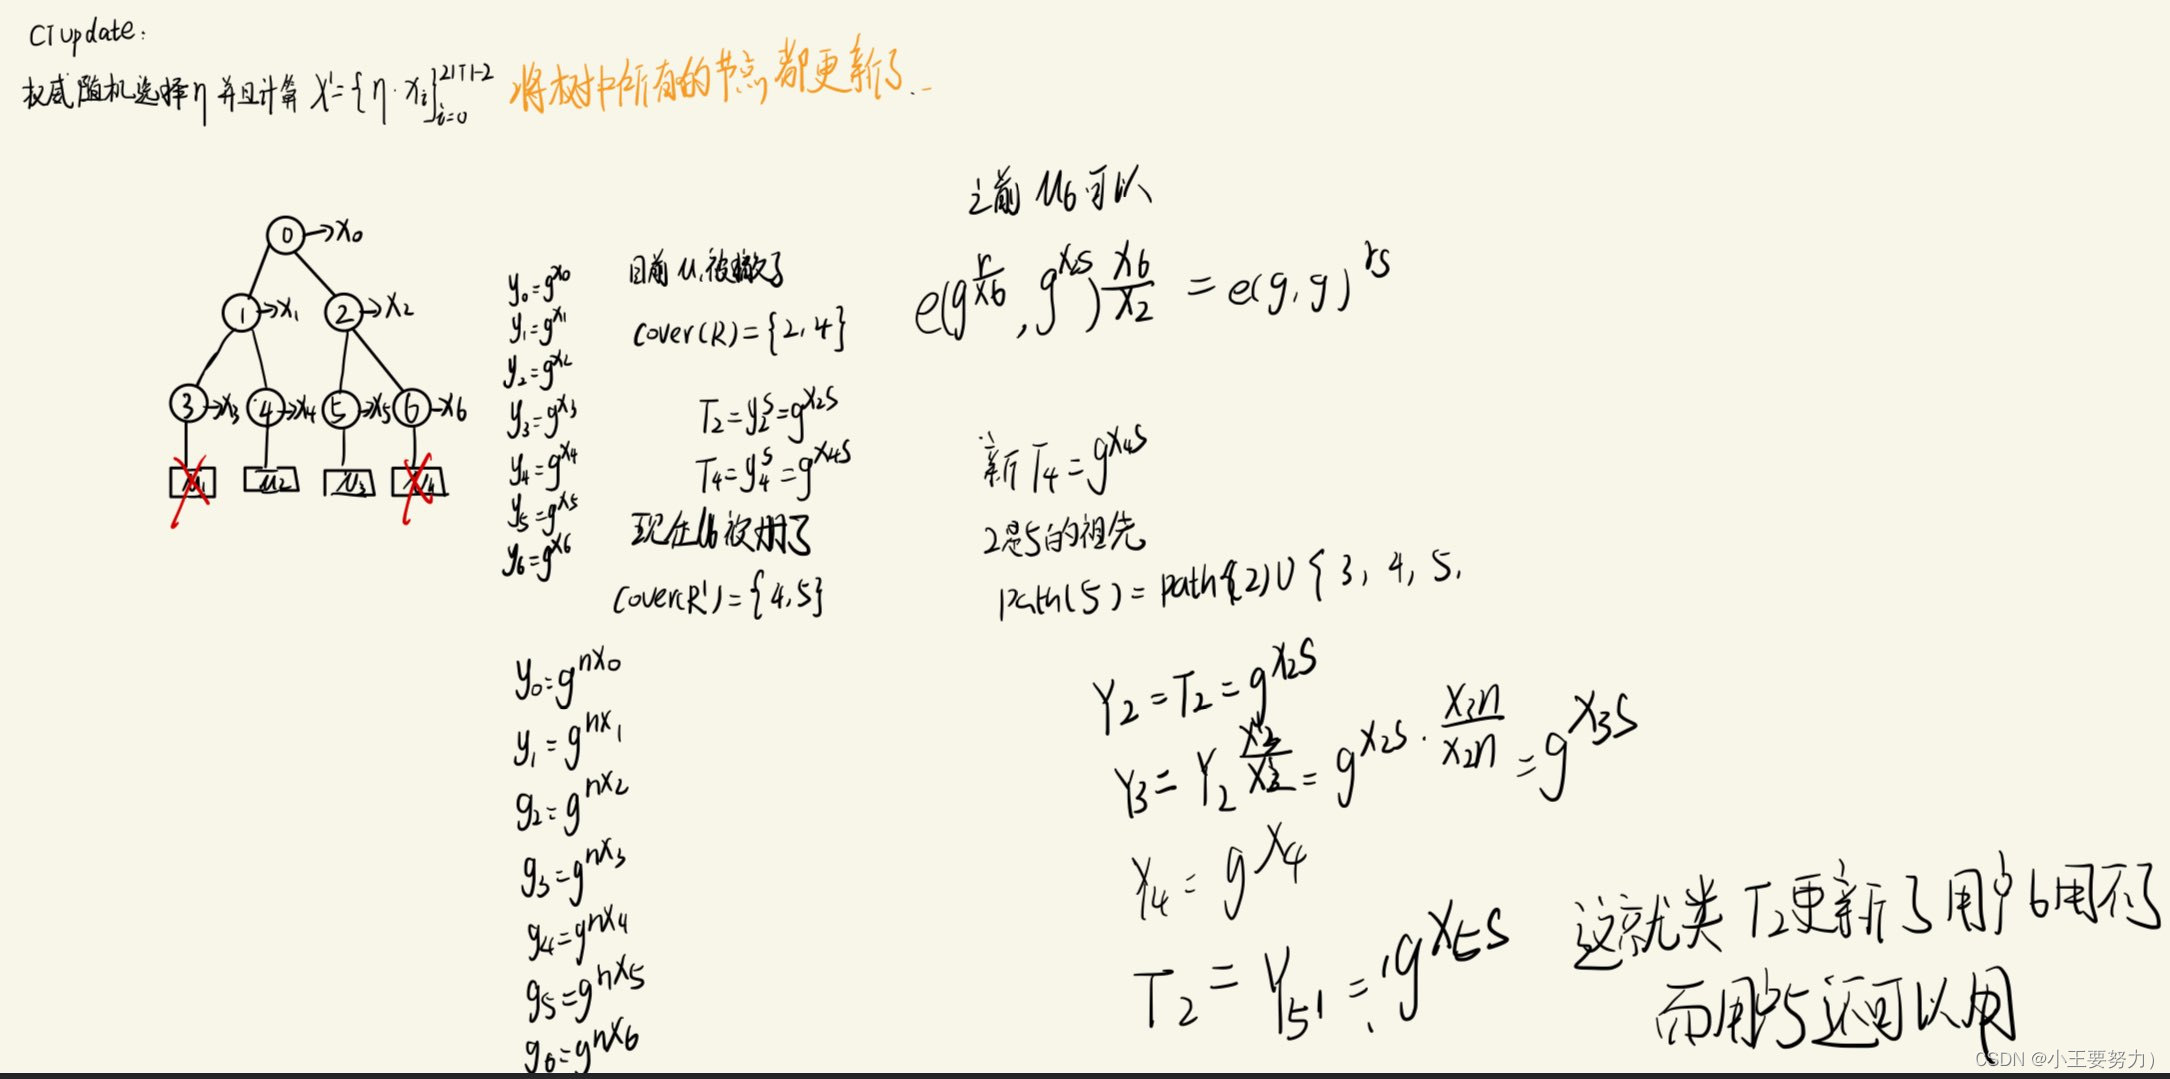 CTUpdate:
权威随机选择η并且计算 X'={η·xᵢ}_{i=0}^{2|T|-2} 将树中所有的节点都更新了.
之前 u6 可以
0→x0
1→x1
2→x2
3→x3
4→x4
5→x5
6→x6
u1
u2
u3
u4
y0=g^{x0}
y1=g^{x1}
y2=g^{x2}
y3=g^{x3}
y4=g^{x4}
y5=g^{x5}
y6=g^{x6}
目前 u1被撤了
cover(R)={2,4}
T2=y2^s=g^{x2s}
T4=y4^s=g^{x4s}
现在u6被册了
cover(R')={4,5}
e(g^{r/x6}, g^{x2s})^{x6/x2} = e(g,g)^{rs}
新 T4=g^{x4s}
2是5的祖先
path(5)=path(2)∪{3,4,5.
y0=g^{nx0}
y1=g^{nx1}
g2=g^{nx2}
g3=g^{nx3}
g4=g^{nx4}
g5=g^{nx5}
g6=g^{nx6}
Y2=T2=g^{x2s}
Y3=Y2^{x'3/x'2}=g^{x2s·x3n/x2n}=g^{x3s}
Y4=g^{x4}
T2=Y51=g^{x5s}
这就类 T2更新了用户6用不了
而用户5还可以用
CSDN @小王要努力）